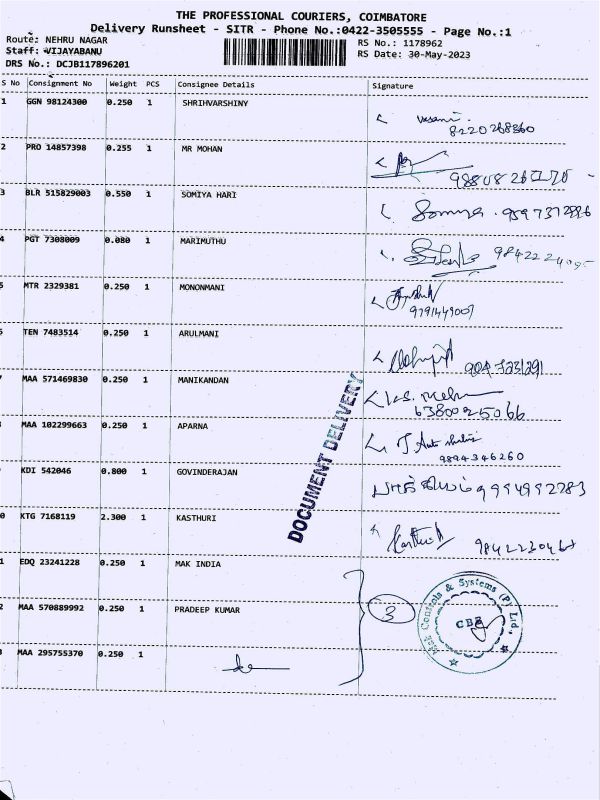 THE PROFESSIONAL COURIERS, COIMBATORE
Delivery Runsheet - SITR - Phone No.:0422-3505555 - Page No.:1
Route: NEHRU NAGAR RS No.: 1178962
Staff: VIJAYABANU RS Date: 30-May-2023
DRS No.: DCJB117896201
S No Consignment No Weight PCS Consignee Details Signature
1 GGN 98124300 0.250 1 SHRIHVARSHINY
8220268360
2 PRO 14857398 0.255 1 MR MOHAN
3 BLR 515829003 0.550 1 SOMIYA HARI
Somiya.
4 PGT 7308009 0.080 1 MARIMUTHU
5 MTR 2329381 0.250 1 MONONMANI
9791449007
TEN 7483514 0.250 1 ARULMANI
7 MAA 571469830 0.250 1 MANIKANDAN
6380025066
MAA 102299663 0.250 1 APARNA
9894346260
KDI 542046 0.800 1 GOVINDERAJAN
9994992783
0 KTG 7168119 2.300 1 KASTHURI
1 EDQ 23241228 0.250 1 MAK INDIA
2 MAA 570889992 0.250 1 PRADEEP KUMAR
3
MAA 295755370 0.250 1
DOCUMENT DELIVERY
Mak Controls & Systems (P) Ltd.,
CBE